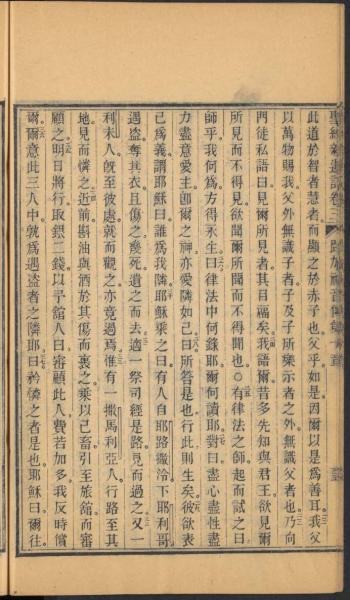 聖經新遺詔卷三 路加福音傳第十章
此道於智者慧者而顯之於赤子也父乎如是因爾以是爲善耳我父
以萬物賜我父外無識子者子及子所樂示者之外無識父者也乃向
門徒私語曰見爾所見者其目福矣我語爾昔多先知與君王欲見爾
所見而不得見欲聞爾所聞而不得聞也○有律法之師起而試之曰
師乎我何爲方得永生曰律法中何錄耶爾何讀耶對曰盡心盡性盡
力盡意愛主卽爾之神亦愛隣如己曰所答是也行此則生矣彼欲表
己爲義謂耶穌曰誰爲我隣耶穌乘之曰有人自耶路撒冷下耶利哥
遇盜奪其衣且傷之幾死遺之而去適一祭司經是路見而過之又一
利未人旣至彼處就而觀之亦竟過焉惟有一撒馬利亞人行路至其
地見而憐之近前斟油與酒於其傷而裹之乘以己畜引至旅館而審
顧之明日將行取銀二錢以予館人曰審顧此人費若加多我反時償
爾爾意此三人中孰爲遇盜者之隣耶曰矜憐之者是也耶穌曰爾往